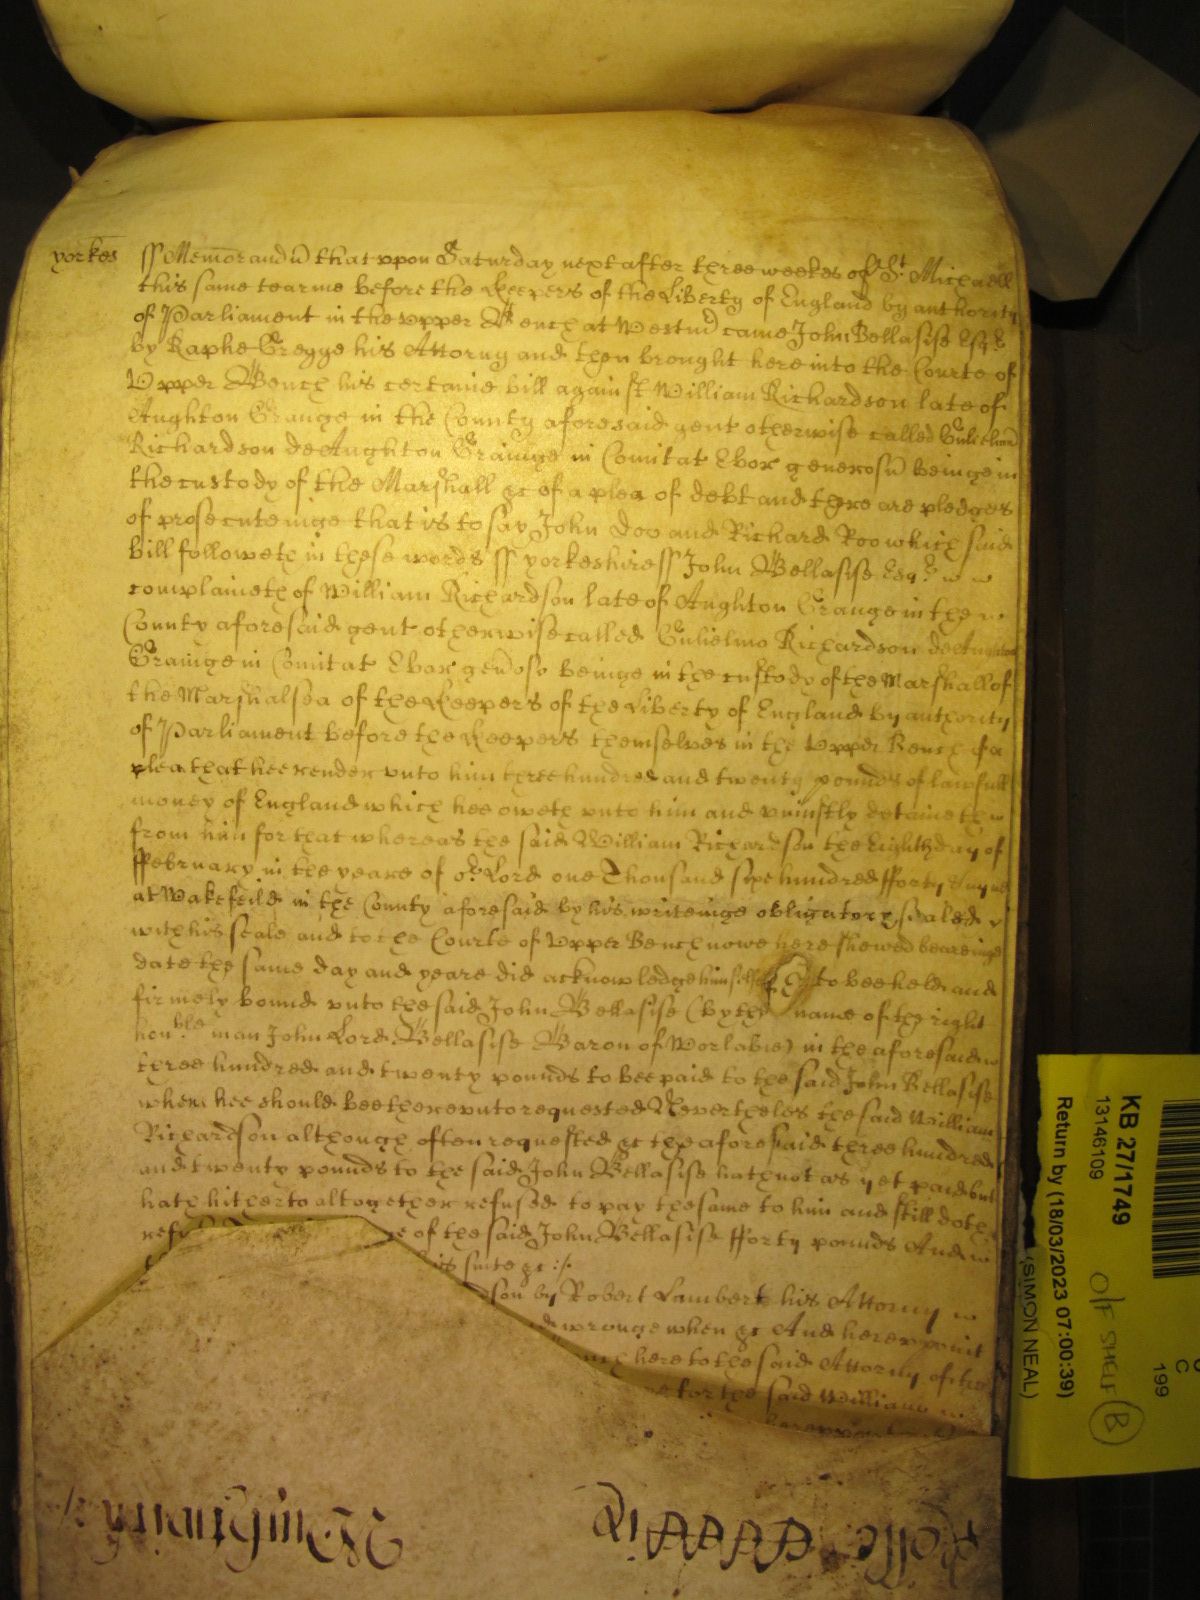 yorkes ss Memorandū that vpon Saturday next after three weekes of St Michaell
this same tearme before the Keepers of the Liberty of England by authority
of Parliament in the vpper Bench at Westm̄ came John Bellasise Esqr
by Raphe Gregge his Attorny and then brought here into the Courte of
Vpper Bench his certaine bill against William Richardson late of
Aughton Grange in the County aforesaid gent otherwise called Gulielmū
Richardson de Aughton Grainge in Comitat Ebor generosū beinge in
the custody of the Marshall &c of a plea of debt and there are pledges
of prosecuteinge that is to say John Doo and Richard Roo which said
bill followeth in these words ss yorkeshire ss John Bellasise Esqr
complaineth of William Richardson late of Aughton Grange in the
County aforesaid gent otherwise called Gulielmo Richardson de Aughton
Grainge in Comitat Ebor gen̄oso beinge in the custody of the Marshall of
the Marshalsea of the Keepers of the Liberty of England by authority
of Parliament before the Keepers themselves in the Vpper Bench of a
plea that hee render vnto him three hundred and twenty pounds of lawfull
money of England which hee oweth vnto him and vniustly detaineth
from him for that whereas the said William Richardson the Eighth day of
ffebruary in the yeare of or Lord one Thousand sixe hundred fforty
at Wakefeild in the County aforesaid by his writeinge obligatory sealed
with his seale and to the Courte of Vpper Bench nowe here shewed beareinge
date the same day and yeare did acknowledge himselfe to bee held and
firmely bound vnto the said John Bellasise (by the name of the right
honble man John Lord Bellasise Baron of Worlabie) in the aforesaid
three hundred and twenty pounds to bee paid to the said John Bellasise
when hee should bee therevnto requested Neverthelès the said William
Richardson although often requested &c the aforesaid three hundred
and twenty pounds to the said John Bellasise hath not as yet paid but
hath hitherto altogether refused to pay the same to him and still doth
refu e of the said John Bellasise fforty pounds And
his suite &c
dson by Robert Lambert his Attorny
wronge when &c And herevponit
here to the said Attorny of the
for the said William
Rolle
KB 27/1749
13146109
Return by (18/03/2023 07:00:39)
(SIMON NEAL)
O/F SHELF B
C
199